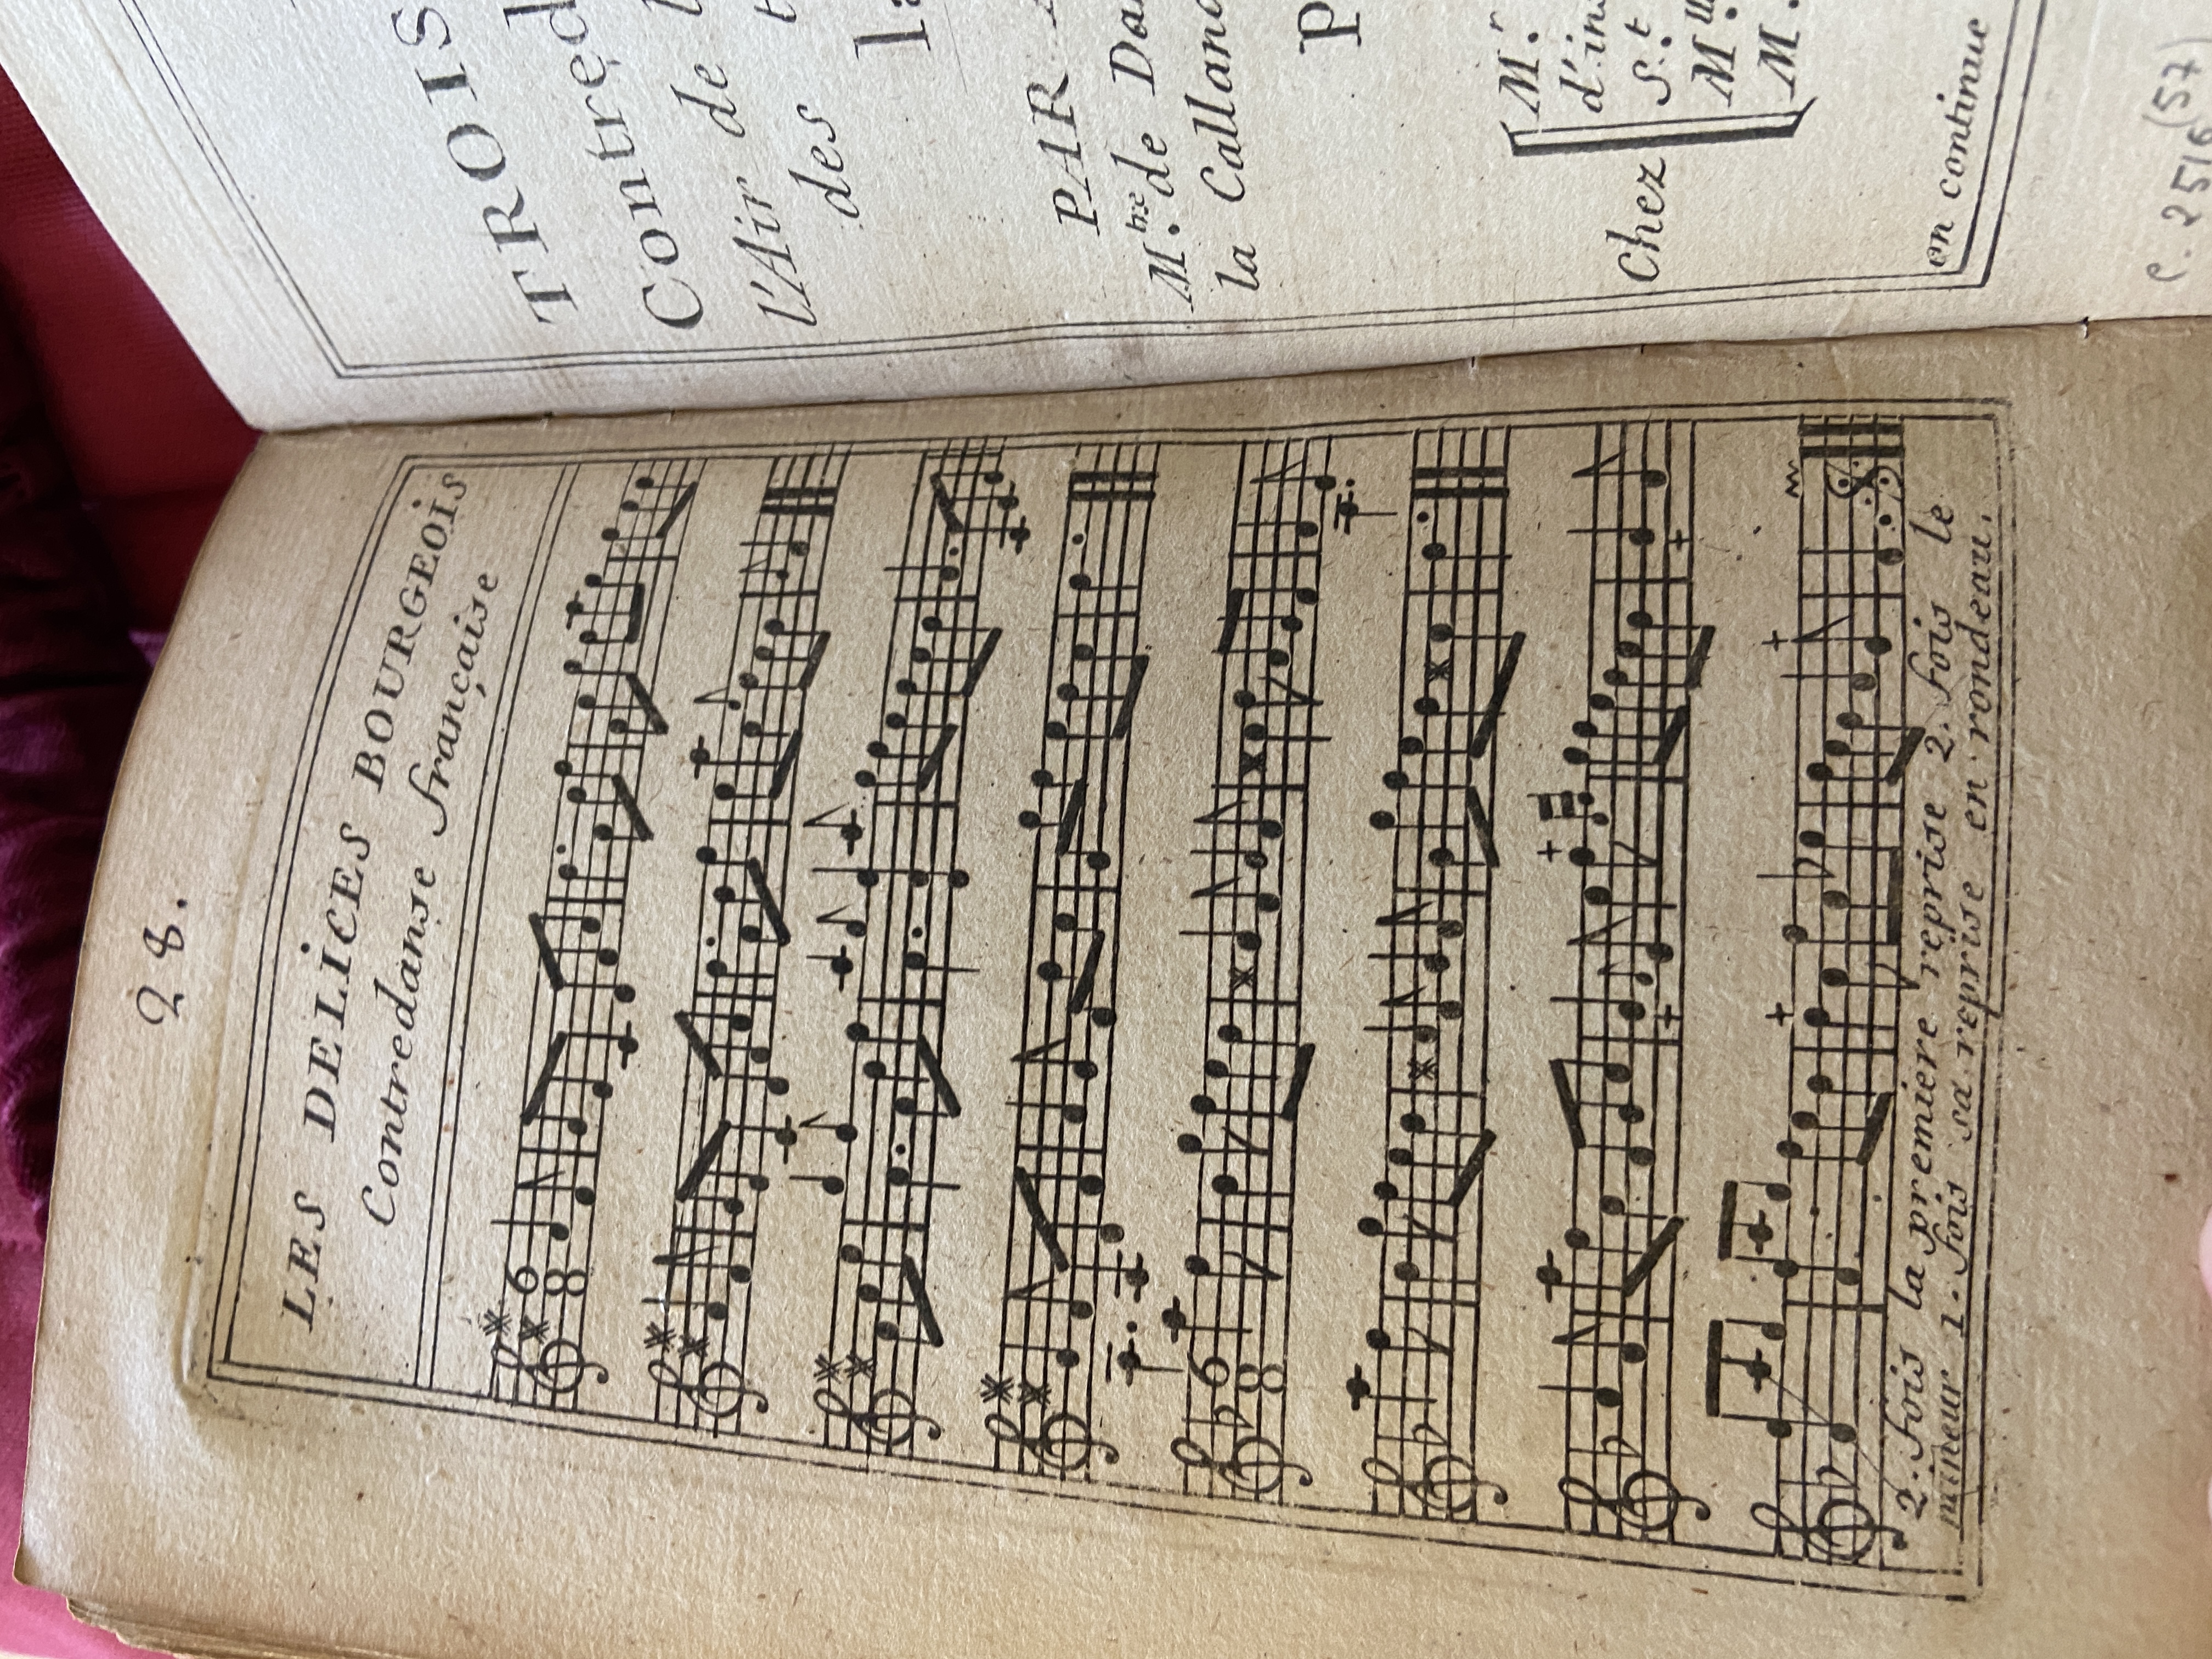 28.
LES DELICES BOURGEOIS
Contredanse française
6
8
6
8
2. fois la premiere reprise 2. fois le
mineur 1. fois sa reprise en rondeau.
TROIS
Contred
l'Air de l
des t
la
PAR
M.tre de Da
la Calland
P
M.r
d'ins
Chez S.t
M.lle
M.
en continue
(57)